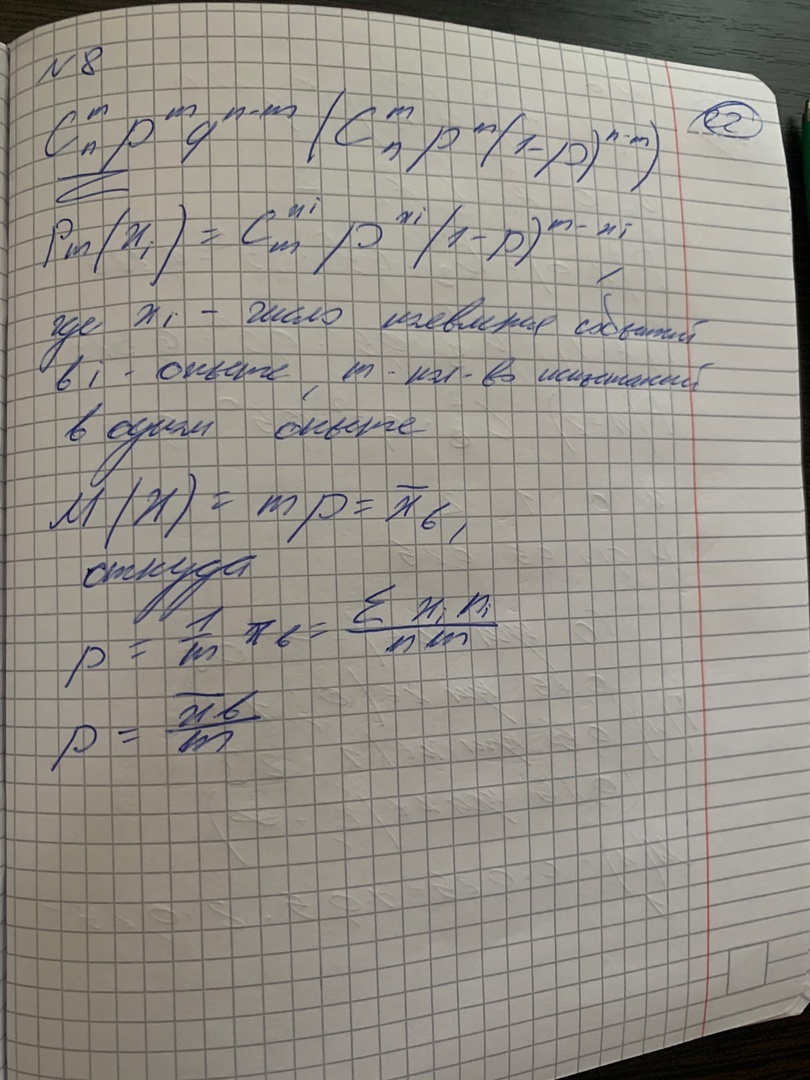 N 8
C_n^m p^m q^{n-m} (C_n^m p^m (1-p)^{n-m})
P_m(x_i) = C_m^{x_i} p^{x_i} (1-p)^{m-x_i},
где x_i - число событий
в i - опыте, m - кол-во испытаний
в одном опыте
M(X) = mp = x̄_в,
откуда
p = 1/m x_в = Σ x_i n_i / nm
p = x̄_в / m